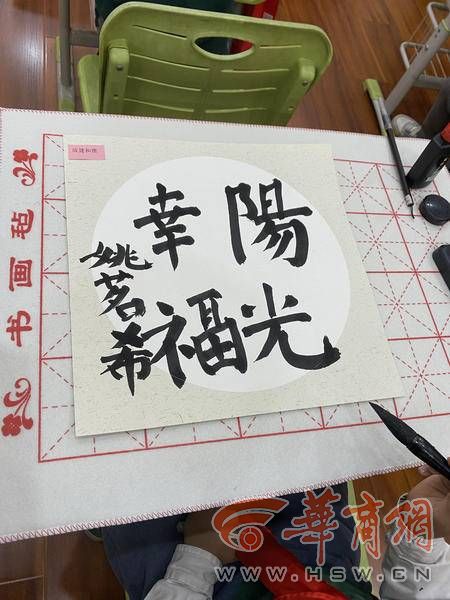 陽光
幸福
姚茗希
书画毡
華商網
WWW.HSW.CN